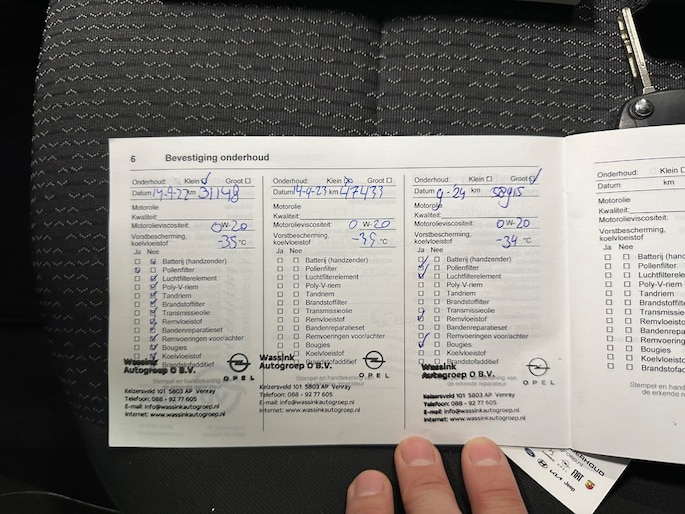 6 Bevestiging onderhoud
Onderhoud: Klein Groot
Datum 14-9-22 km 31148
Motorolie
Kwaliteit:
Motorolieviscositeit: 0 W-20
Vorstbescherming,
koelvloeistof -35 °C
Ja Nee
Batterij (handzender)
Pollenfilter
Luchtfilterelement
Poly-V-riem
Tandriem
Brandstoffilter
Transmissieolie
Remvloeistof
Bandenreparatieset
Remvoeringen voor/achter
Bougies
Koelvloeistof
Brandstofadditief
Wassink
Autogroep O B.V.
OPEL
Stempel en handtekening
Keizersveld 101 5803 AP Venray
Telefoon: 088 - 92 77 605
E-mail: info@wassinkautogroep.nl
Internet: www.wassinkautogroep.nl
Onderhoud: Klein Groot
Datum 14-9-23 km 47433
Motorolie
Kwaliteit:
Motorolieviscositeit: 0 W-20
Vorstbescherming,
koelvloeistof -35 °C
Ja Nee
Batterij (handzender)
Pollenfilter
Luchtfilterelement
Poly-V-riem
Tandriem
Brandstoffilter
Transmissieolie
Remvloeistof
Bandenreparatieset
Remvoeringen voor/achter
Bougies
Koelvloeistof
Brandstofadditief
Wassink
Autogroep O B.V.
OPEL
Keizersveld 101 5803 AP Venray
Telefoon: 088 - 92 77 605
E-mail: info@wassinkautogroep.nl
Internet: www.wassinkautogroep.nl
Onderhoud: Klein Groot
Datum 9-24 km 58915
Motorolie
Kwaliteit:
Motorolieviscositeit: 0 W-20
Vorstbescherming,
koelvloeistof -34 °C
Ja Nee
Batterij (handzender)
Pollenfilter
Luchtfilterelement
Poly-V-riem
Tandriem
Brandstoffilter
Transmissieolie
Remvloeistof
Bandenreparatieset
Remvoeringen voor/achter
Bougies
Koelvloeistof
Brandstofadditief
Wassink
Autogroep O B.V.
OPEL
Keizersveld 101 5803 AP Venray
Telefoon: 088 - 92 77 605
E-mail: info@wassinkautogroep.nl
Internet: www.wassinkautogroep.nl
Onderhoud: Klein
Datum km
Motorolie
Kwaliteit:
Motorolieviscositeit:
Vorstbescherming,
koelvloeistof
Ja Nee
Batterij (hand
Pollenfilter
Luchtfilterelem
Poly-V-riem
Tandriem
Brandstoffilte
Transmissieo
Remvloeistof
Bandenrepara
Remvoeringen
Bougies
Koelvloeistof
Brandstofaddit
Stempel en hand
de erkende r
FIAT
KIA Jeep